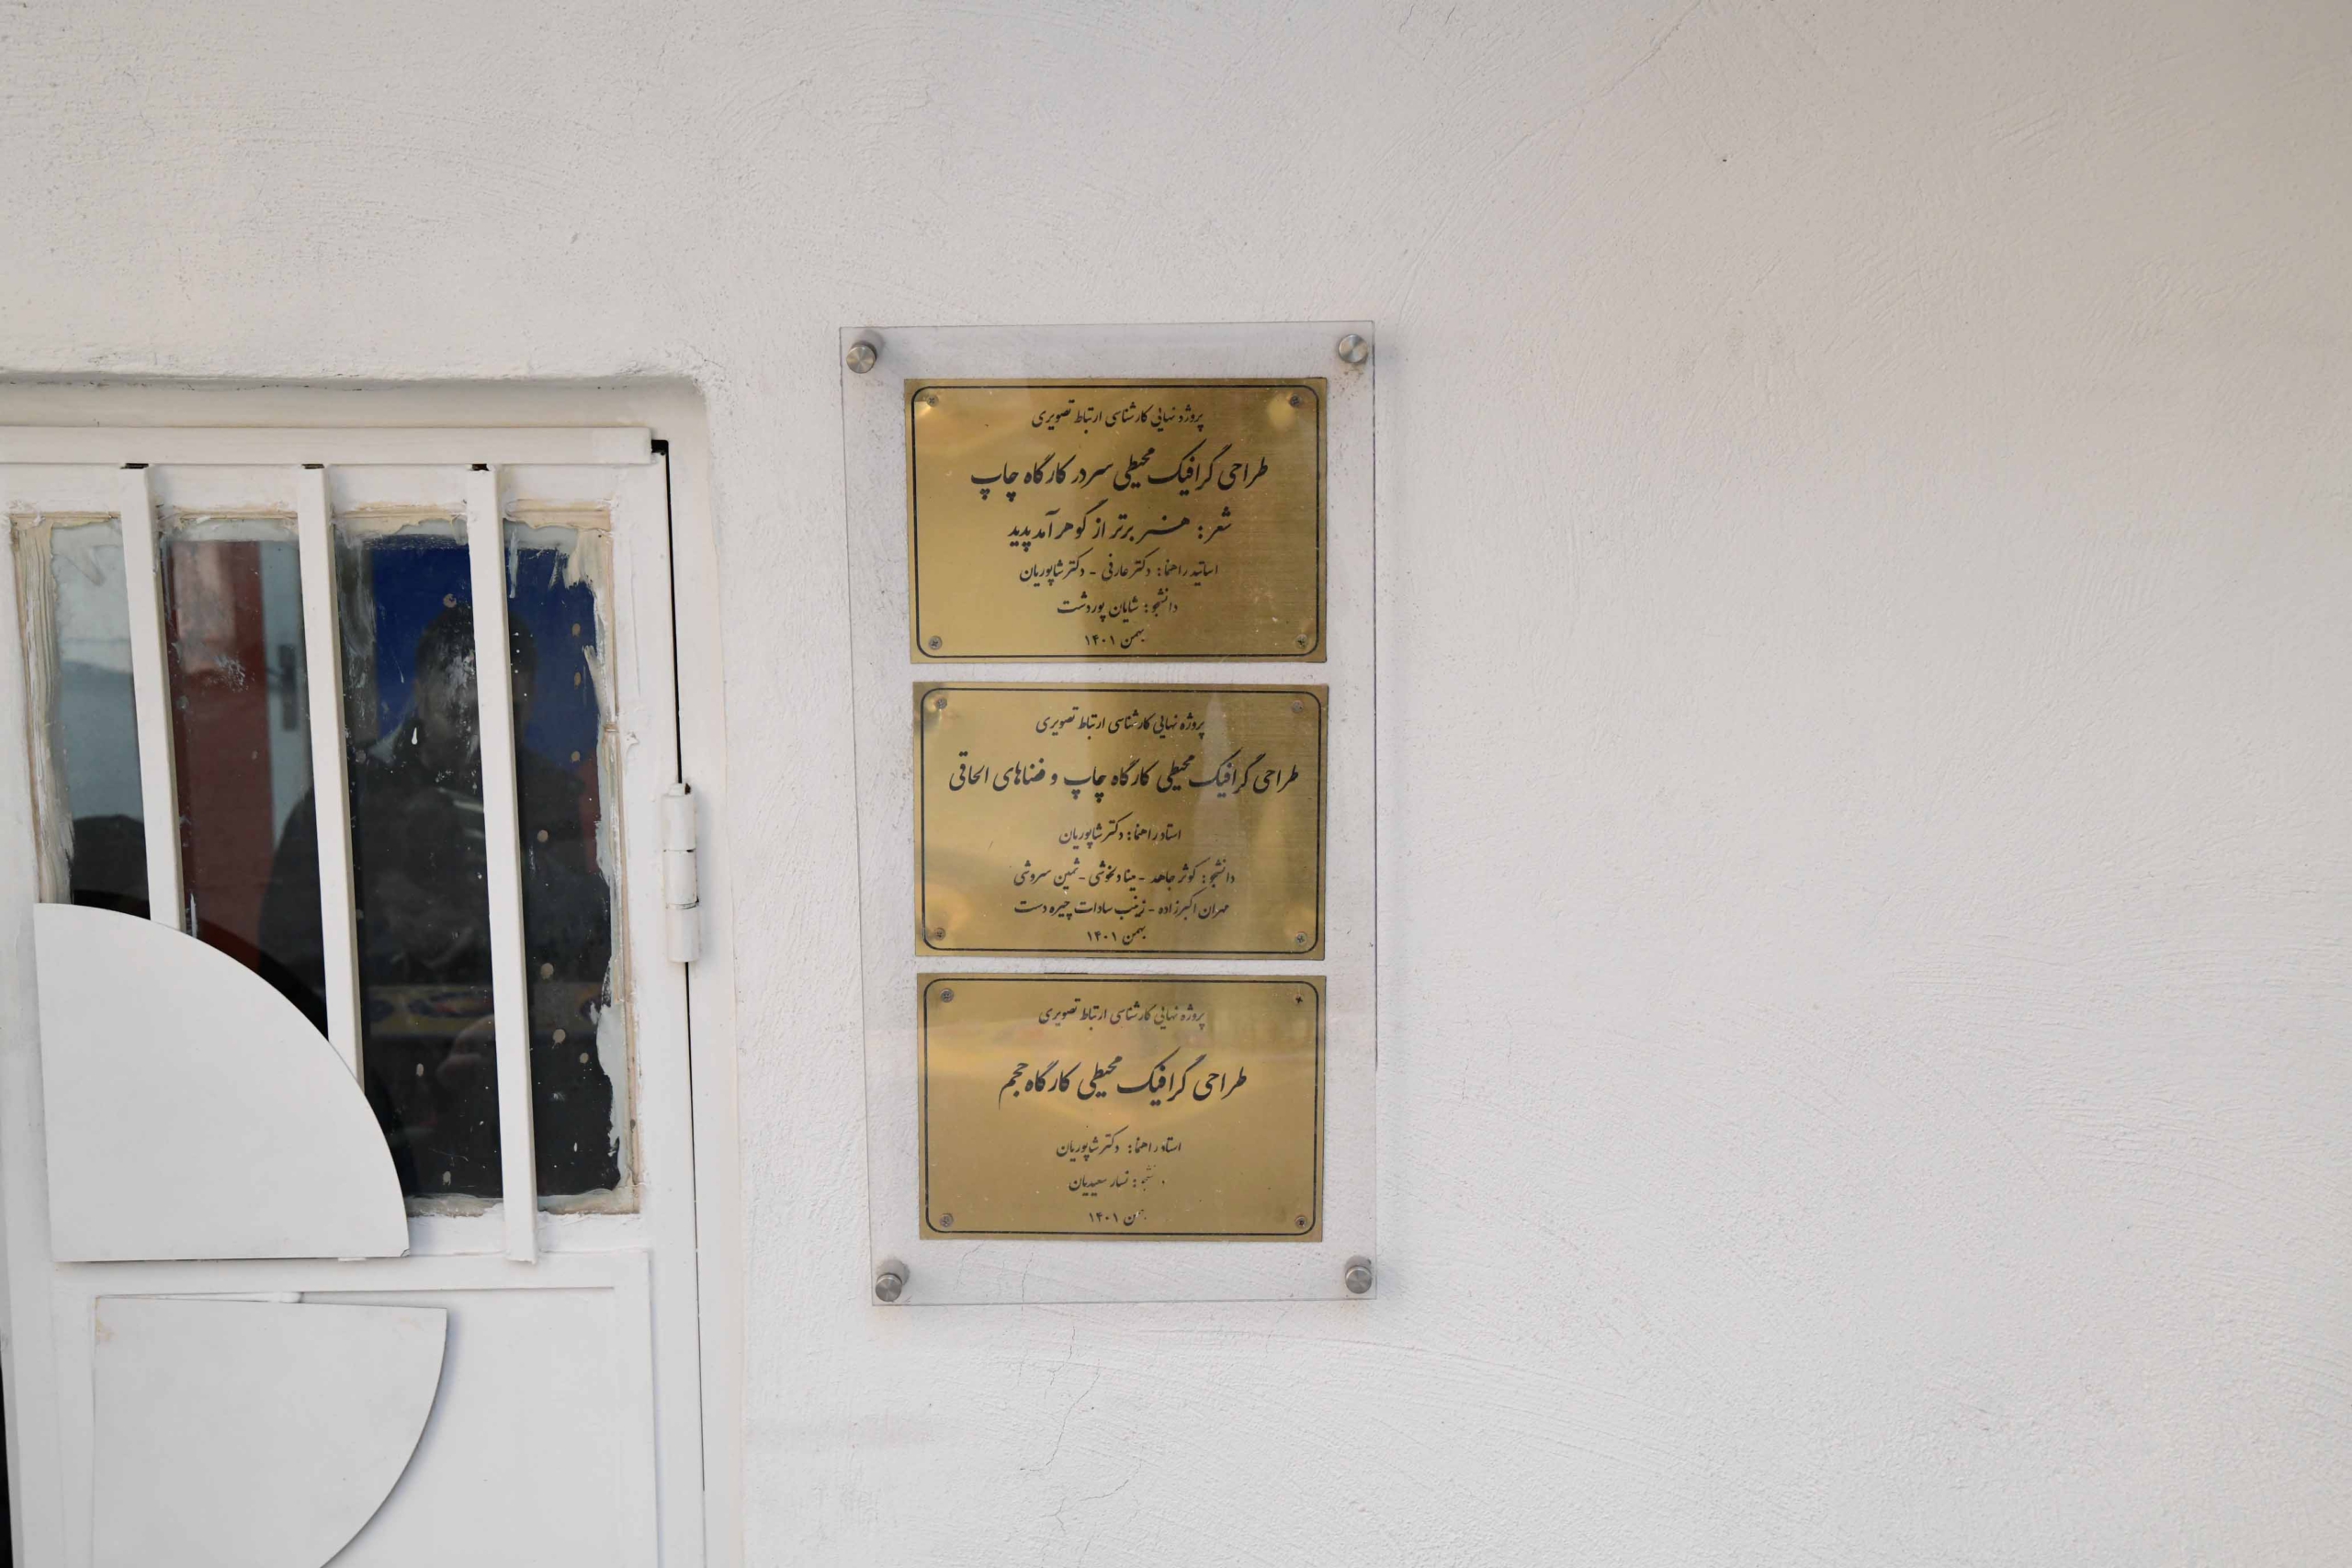 پروژه نهایی کارشناسی ارتباط تصویری
طراحی گرافیک محیطی سردر کارگاه چاپ
شعر: هنر برتر از گوهر آمد پدید
اساتید راهنما: دکتر عارفی - دکتر شاپوریان
دانشجو: شایان پوردشت
بهمن ۱۴۰۱
پروژه نهایی کارشناسی ارتباط تصویری
طراحی گرافیک محیطی کارگاه چاپ و فضاهای الحاقی
استاد راهنما: دکتر شاپوریان
دانشجو: کوثر جاهد - مینا دلخوشی - ثمین سروشی
مهران اکبرزاده - زینب سادات چیره دست
بهمن ۱۴۰۱
پروژه نهایی کارشناسی ارتباط تصویری
طراحی گرافیک محیطی کارگاه حجم
استاد راهنما: دکتر شاپوریان
دانشجو: سعیدیان
بهمن ۱۴۰۱